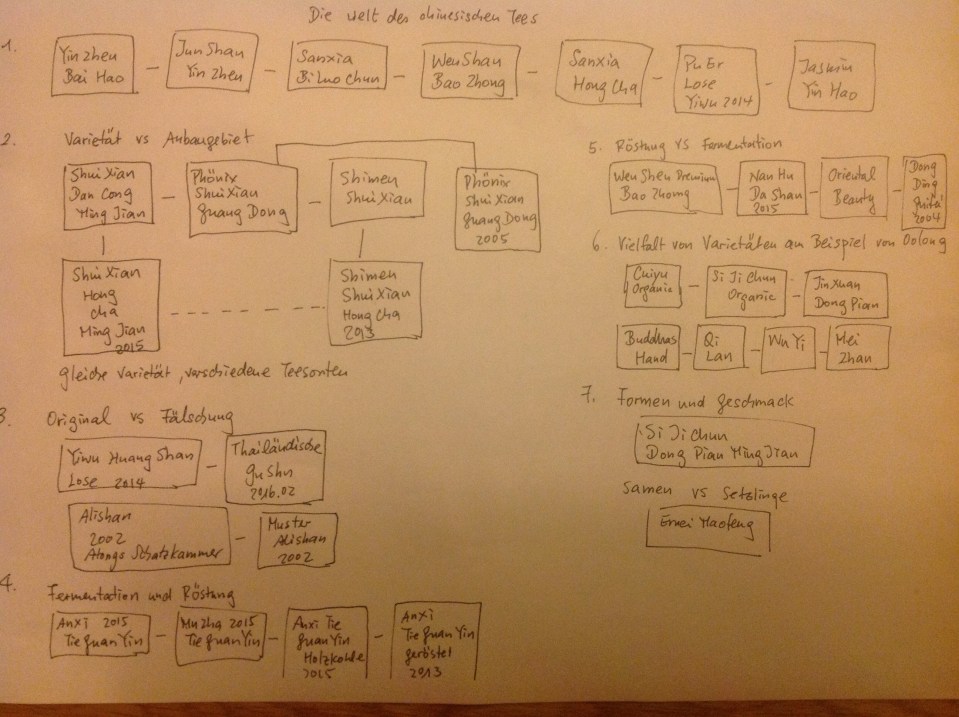 Die Welt des chinesischen Tees
1.
Yin Zhen
Bai Hao
Jun Shan
Yin Zhen
Sanxia
Bi Luo Chun
Wen Shan
Bao Zhong
Sanxia
Hong Cha
Pu Er
Lose
Yiwu 2014
Jasmin
Yin Hao
2. Varietät vs Anbaugebiet
Shui Xian
Dan Cong
Ming Jian
Phönix
Shui Xian
Guang Dong
Shimen
Shui Xian
Phönix
Shui Xian
Guang Dong
2005
Shui Xian
Hong
Cha
Ming Jian
2015
Shimen
Shui Xian
Hong Cha
2013
gleiche Varietät, verschiedene Teesorten
3. Original vs Fälschung
Yiwu Huang Shan
Lose 2014
Thailändische
Gu Shu
2016.02
Alishan
2002
Atongs Schatzkammer
Muster
Alishan
2002
4. Fermentation und Röstung
Anxi 2015
Tie Guan Yin
Mu Zha 2015
Tie Guan Yin
Anxi Tie
Guan Yin
Holzkohle
2015
Anxi
Tie Guan Yin
geröstet
2013
5. Röstung vs Fermentation
Wen Shen Premium
Bao Zhong
Nan Hu
Da Shan
2015
Oriental
Beauty
Dong
Ding
2004
6. Vielfalt von Varietäten am Beispiel von Oolong
Cuiyu
Organic
Si Ji Chun
Organic
Jin Xuan
Dong Pian
Buddhas
Hand
Qi
Lan
Wu Yi
Mei
Zhan
7. Formen und Geschmack
Si Ji Chun
Dong Pian Ming Jian
Samen vs Setzlinge
Emei Maofeng